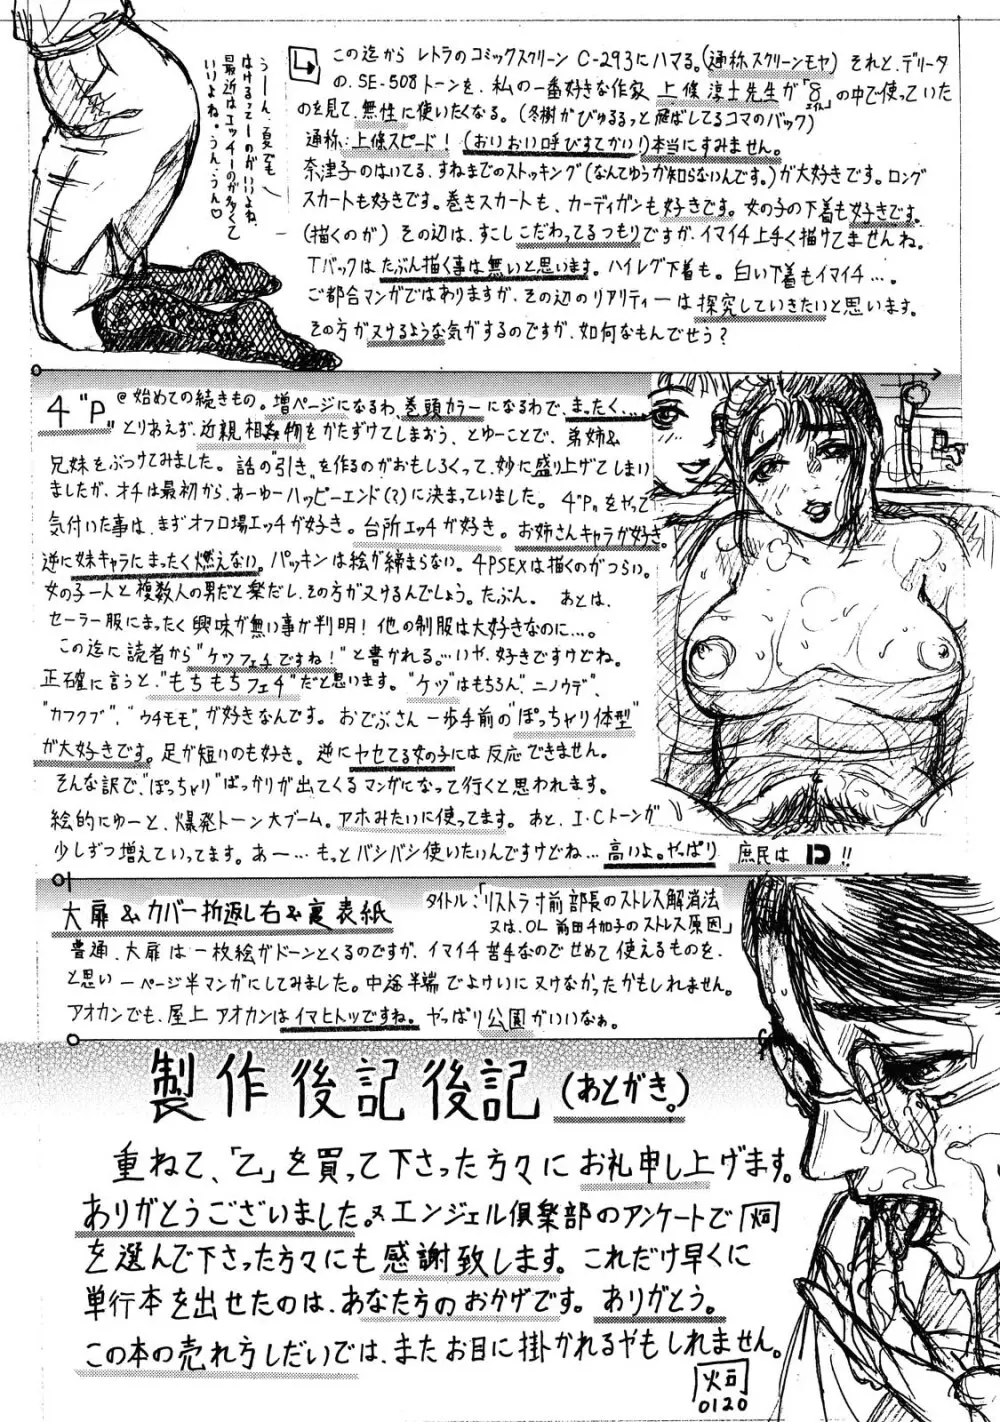 この迄から レトラのコミックスクリーン C-293にハマる。(通称スクリーンモヤ) それと、デリータ
の、SE-508トーンを、私の一番好きな作家 上條淳士先生が「8 エイト」の中で使っていた
のを見て、無性に使いたくなる。(冬樹がびゅるるっと飛ばしてるコマのバック)
通称:上條スピード! (おいおい呼びすてかい!)本当にすみません。
奈津子のはいてる、すねまでのストッキング(なんてゆうか知らないんです。)が大好きです。ロング
スカートも好きです。巻きスカートも、カーディガンも好きです。女の子の下着も好きです。
(描くのが) その辺は、すこしこだわってるつもりですが、イマイチ上手く描けてませんね。
Tバックはたぶん描く事は無いと思います。ハイレグ下着も。白い下着もイマイチ…。
ご都合マンガではありますが、その辺のリアリティーは探究していきたいと思います。
その方がヌけるような気がするのですが、如何なもんでせう?
うーん、夏でも
はけるってーのがいいよね、
最近はエッチーのが多くて
いいよね。うん、うん♡
4"P"
@始めての続きもの。増ページになるわ、巻頭カラーになるわで、まったく…。
とりあえず、近親相姦物をかたずけてしまおう、とゆーことで、弟姉&
兄妹をぶつけてみました。話の"引き"を作るのがおもしろくって、妙に盛り上げてしまい
ましたが、オチは最初から、あーゆーハッピーエンド(?)に決まっていました。4"P"をやって
気付いた事は、まずオフロ場エッチが好き。台所エッチが好き。お姉さんキャラが好き。
逆に妹キャラにまったく燃えない。パッキンは絵が締まらない。4PSEXは描くのがつらい。
女の子一人と複数人の男だと楽だし、その方がヌけるんでしょう。たぶん。 あとは、
セーラー服にまったく興味が無い事が判明!他の制服は大好きなのに…。
この迄に読者から"ケツフェチですね!"と書かれる。…いや、好きですけどね。
正確に言うと、"もちもちフェチ"だと思います。"ケツ"はもちろん、ニノウデ"、
"カフクブ"、"ウチモモ"、が好きなんです。おでぶさん一歩手前の"ぽっちゃり体型"
が大好きです。足が短いのも好き。逆にヤセてる女の子には反応できません。
そんな訳で"ぽっちゃり"ばっかりが出てくるマンガになって行くと思われます。
絵的にゆーと、爆発トーン大ブーム。アホみたいに使ってます。あと、I・Cトーンが
少しずつ増えていってます。あー…もっとバシバシ使いたいんですけどね…高いよ。やっぱり 庶民は !!
大扉&カバー折返し右&裏表紙
タイトル:「リストラ寸前部長のストレス解消法
又は、OL 前田千加子のストレス原因」
普通、大扉は一枚絵がドーンとくるのですが、イマイチ苦手なのでせめて使えるものを、
と思い一ページ半マンガにしてみました。中途半端でよけいにヌけなかったかもしれません。
アオカンでも、屋上アオカンはイマヒトツですね。やっぱり公園がいいなぁ。
製作後記後記(あとがき。)
重ねて、「乙」を買って下さった方々にお礼申し上げます。
ありがとうございました。又エンジェル倶楽部のアンケートで
を選んで下さった方々にも感謝致します。これだけ早くに
単行本を出せたのは、あなた方のおかげです。ありがとう。
この本の売れ方しだいでは、またお目に掛かれるやもしれません。
0120